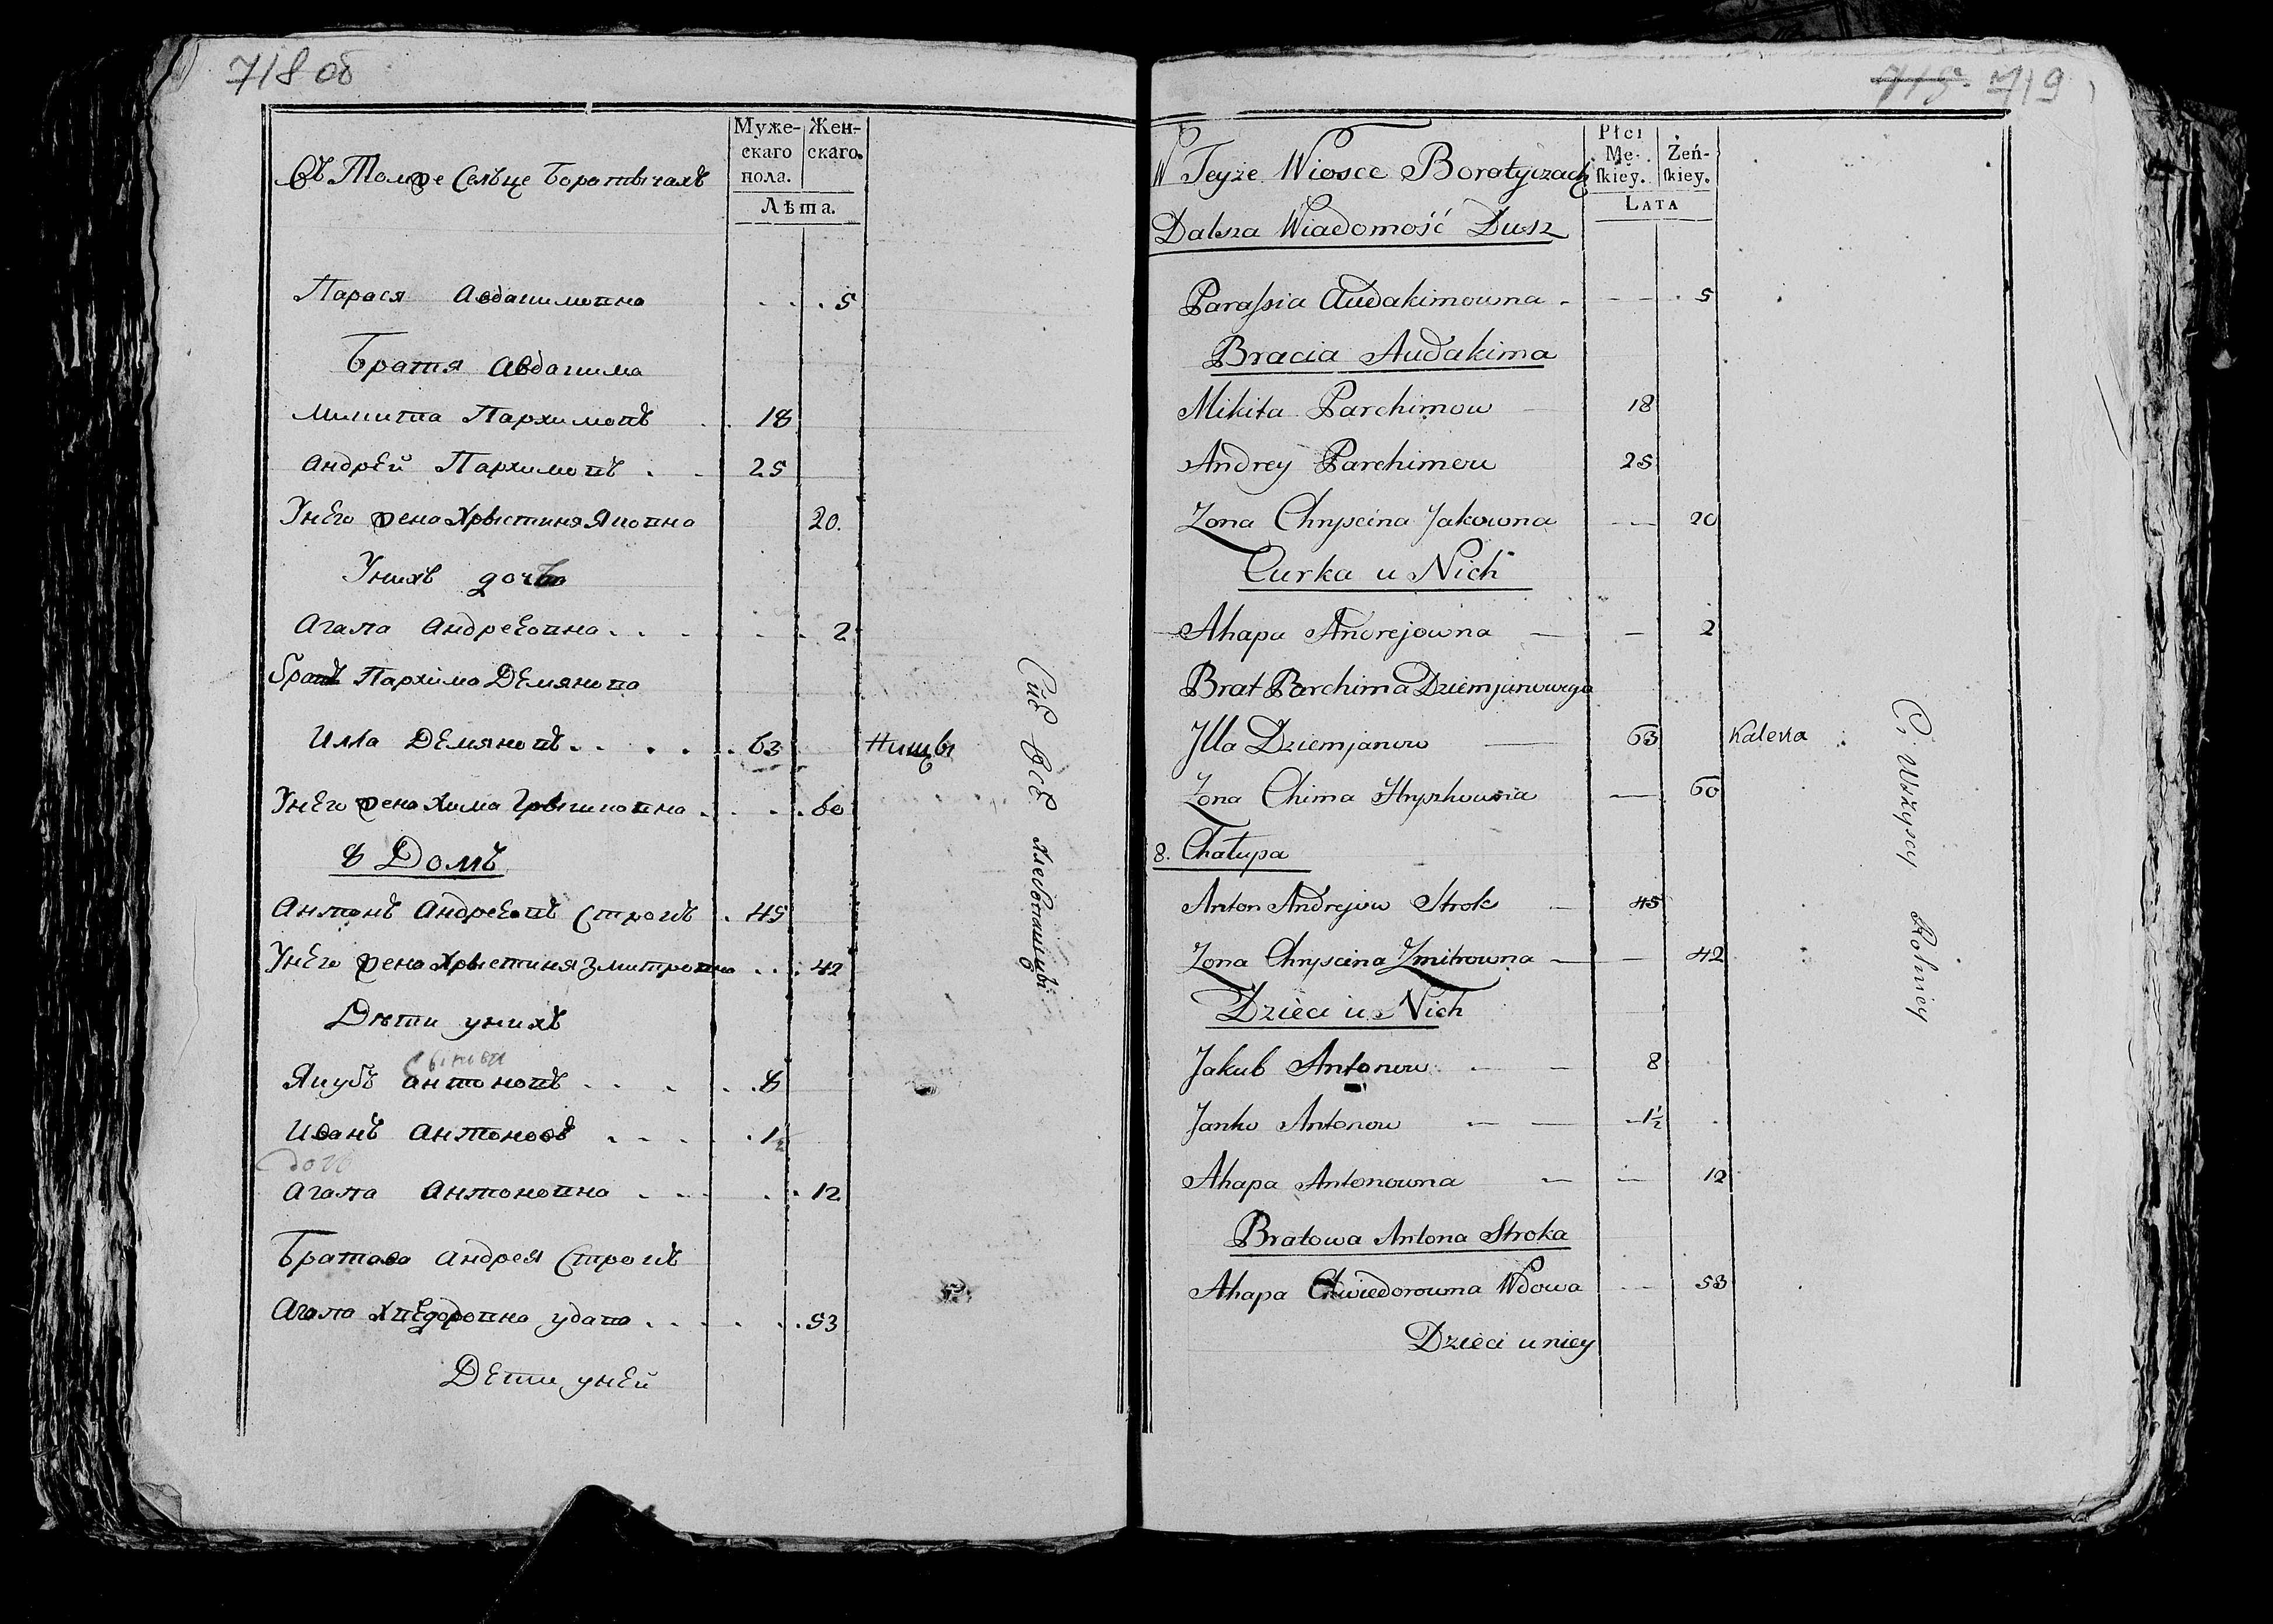 718 об
Въ Томже Селѣце Боратычахъ
Муже-
скаго
пола.
Жен-
скаго.
Лѣта.
Парася Авдакимовна . . . 5
Братя Авдакима
Микита Пархимовъ . . 18
Андрей Пархимовъ . . 25
Унего жена Хрыстиня Яковна 20.
Унихъ дочь
Агапа Андреевна . . . . . 2
братъ Пархима Демянова
Илла Демяновъ . . . . . 63 Нищы
Унего жена Хима Грышковна . . . 60
8 Домъ
Антонъ Андреевъ Строкъ . 45
Унего жена Хрыстиня Змитровна . . . 42
Дѣти унихъ
сынови
Якубъ Антоновъ . . . . . 8
Иванъ Антоновъ . . . . . 1½
дочь
Агапа Антоновна . . . . . 12
Братова Андрея Строкъ
Агапа Хведоровна удава . . . . . 53
Дети уней
Сиѣ Всѣ Хлебопашцы
719
W Teyże Wiosce Boratyczach
Dalsza Wiadomość Dusz
Płci
Mę-
skiey.
Żeń-
skiey.
LATA
Parassia Audakimowna - — — 5
Bracia Audakima
Mikita Parchimow — 18
Andrey Parchimow 25
Zona Chryscina Jakowna — 20
Curka u Nich
Ahapa Andrejowna — — 2
Brat Parchima Dziemjanowego
Jlla Dziemjanow — 63 Kaleka
Zona Chima Hryszkowna — 60
8. Chałupa
Anton Andrejow Strok — 45
Zona Chryscina Zmitrowna — — 42
Dzieci u Nich
Jakub Antonow — — 8
Janko Antonow — — 1½
Ahapa Antonowna — — 12
Bratowa Antona Stroka
Ahapa Chwiedorowna Wdowa — 53
Dzieci u niey
Ci Wszyscy Rolnicy